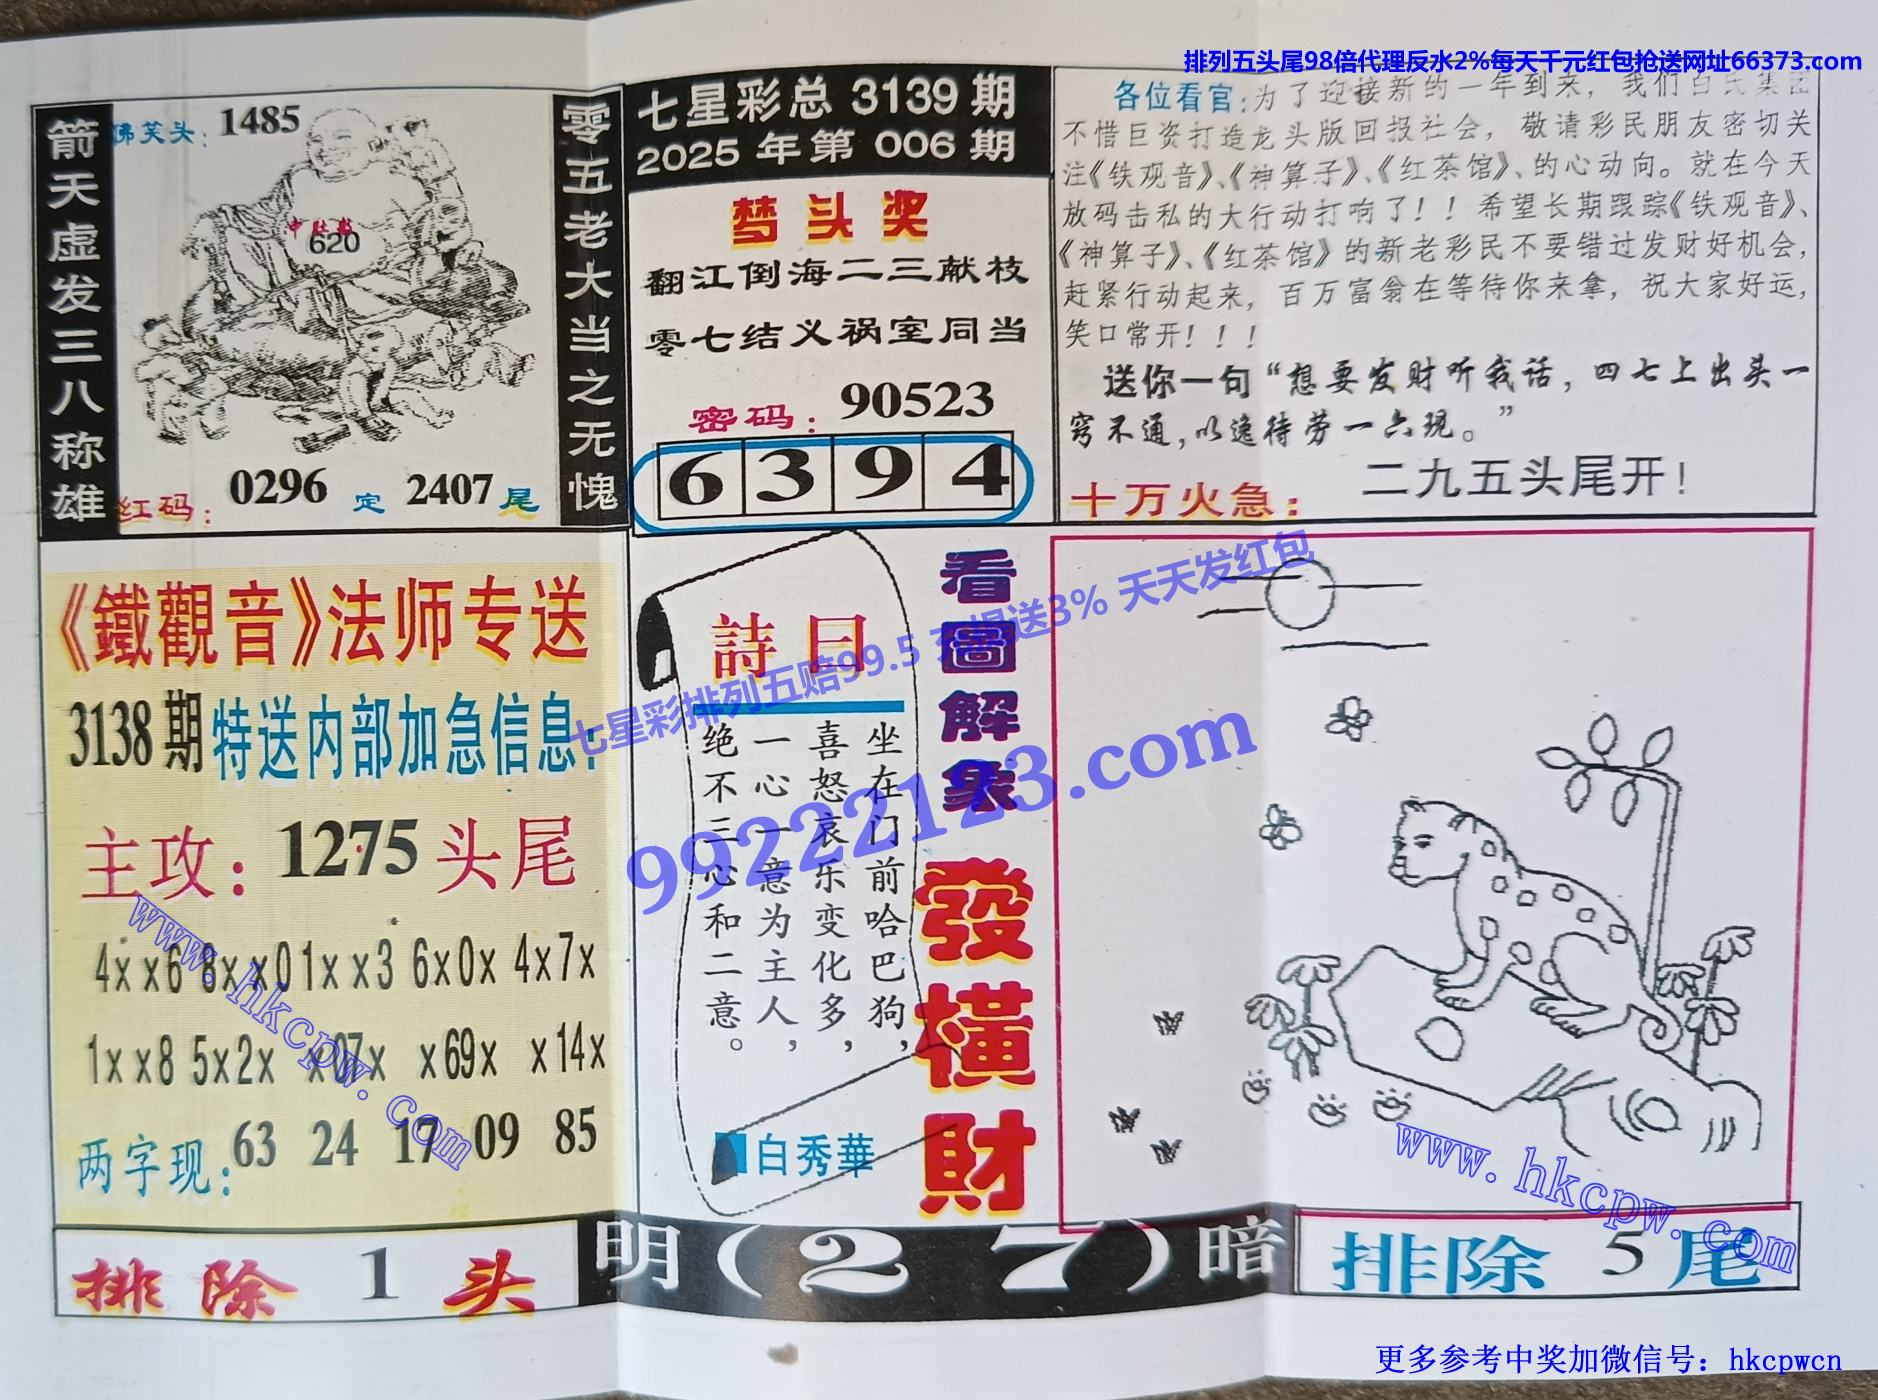 排列五头尾98倍代理反水2%每天千元红包抢送网址66373.com
箭天虚发三八称雄
佛笑头：1485
中肚数
620
红码：0296 定 2407尾
零五老大当之无愧
七星彩总 3139 期
2025 年第 006 期
梦头奖
翻江倒海二三献枝
零七结义祸室同当
密码：90523
6 3 9 4
各位看官：为了迎接新的一年到来，我们白氏集团
不惜巨资打造龙头版回报社会，敬请彩民朋友密切关
注《铁观音》、《神算子》、《红茶馆》、的心动向。就在今天
放码击私的大行动打响了！！希望长期跟踪《铁观音》、
《神算子》、《红茶馆》的新老彩民不要错过发财好机会，
赶紧行动起来，百万富翁在等待你来拿，祝大家好运，
笑口常开！！！
送你一句“想要发财听我话，四七上出头一
窍不通，以逸待劳一六现。”
十万火急：二九五头尾开！
《鐵觀音》法师专送
3138期特送内部加急信息：
主攻：1275头尾
4xx6 8xx0 1xx3 6x0x 4x7x
1xx8 5x2x x07x x69x x14x
两字现：63 24 17 09 85
詩曰
坐在门前哈巴狗，
喜怒哀乐变化多，
一心一意为主人，
绝不三心和二意。
白秀華
看圖解象
發橫財
七星彩排列五赔99.5 充提送3% 天天发红包
99222123.com
www.hkcpw.com
www.hkcpw.com
排除 1 头
明（2 7）暗
排除 5 尾
更多参考中奖加微信号：hkcpwcn